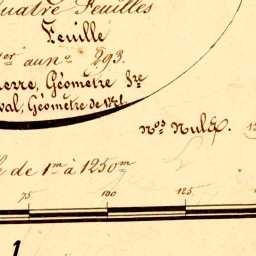 Quatre Feuilles
Feuille
er au n° 293.
Géomètre
val, Géomètre de 1re cl.
Nos Nuls.
de 1m à 1250m
75 100 125
1